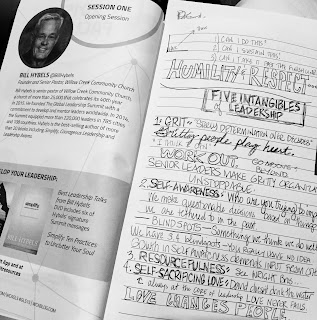 SESSION ONE
Opening Session
BILL HYBELS @BillHybels
Founder and Senior Pastor, Willow Creek Community Church
Bill Hybels is senior pastor of Willow Creek Community Church,
a church of more than 25,000 that celebrates its 40th year
in 2015. He founded The Global Leadership Summit with a
commitment to develop and mentor leaders worldwide. In 2014,
the Summit equipped more than 220,000 leaders in 795 cities
and 109 countries. Hybels is the best-selling author of more
than 20 books including Simplify, Courageous Leadership and
Leadership Axioms.
DEVELOP YOUR LEADERSHIP:
simplify
BILL HYBELS
Best Leadership Talks
from Bill Hybels
DVD includes six of
Hybels' signature
Summit messages
Simplify: Ten Practices
to Unclutter Your Soul
App and at
/resources
1 | CAN I DO THIS?
2 | CAN I SUSTAIN THIS?
3 | CAN I
HUMILITY & RESPECT...
FIVE INTANGIBLES
of LEADERSHIP
1. GRIT - "SHOULD DETERMINATION OVER DECADES"
Gritty people play heart.
"I think I can"
WORK OUT. GO ABOVE & BEYOND
SENIOR LEADERS MAKE GRITTY ORGANIZ
UNSTOPPABLE.
2. SELF-AWARENESS: Who are you trying to imp
We make questionable decisions based on things
we are tethered to in the past
BLINDSPOTS - Something we think we do well
We have 3.4 blindspots - you REALLY HAVE NO IDEA
Growth in self-awareness demands INPUT FROM OTH
3. RESOURCEFULNESS -
4. SELF-SACRIFICING LOVE - David doesn't drink the water
always at the core of leadership LOVE NEVER FAILS.
LOVE CHANGES PEOPLE.